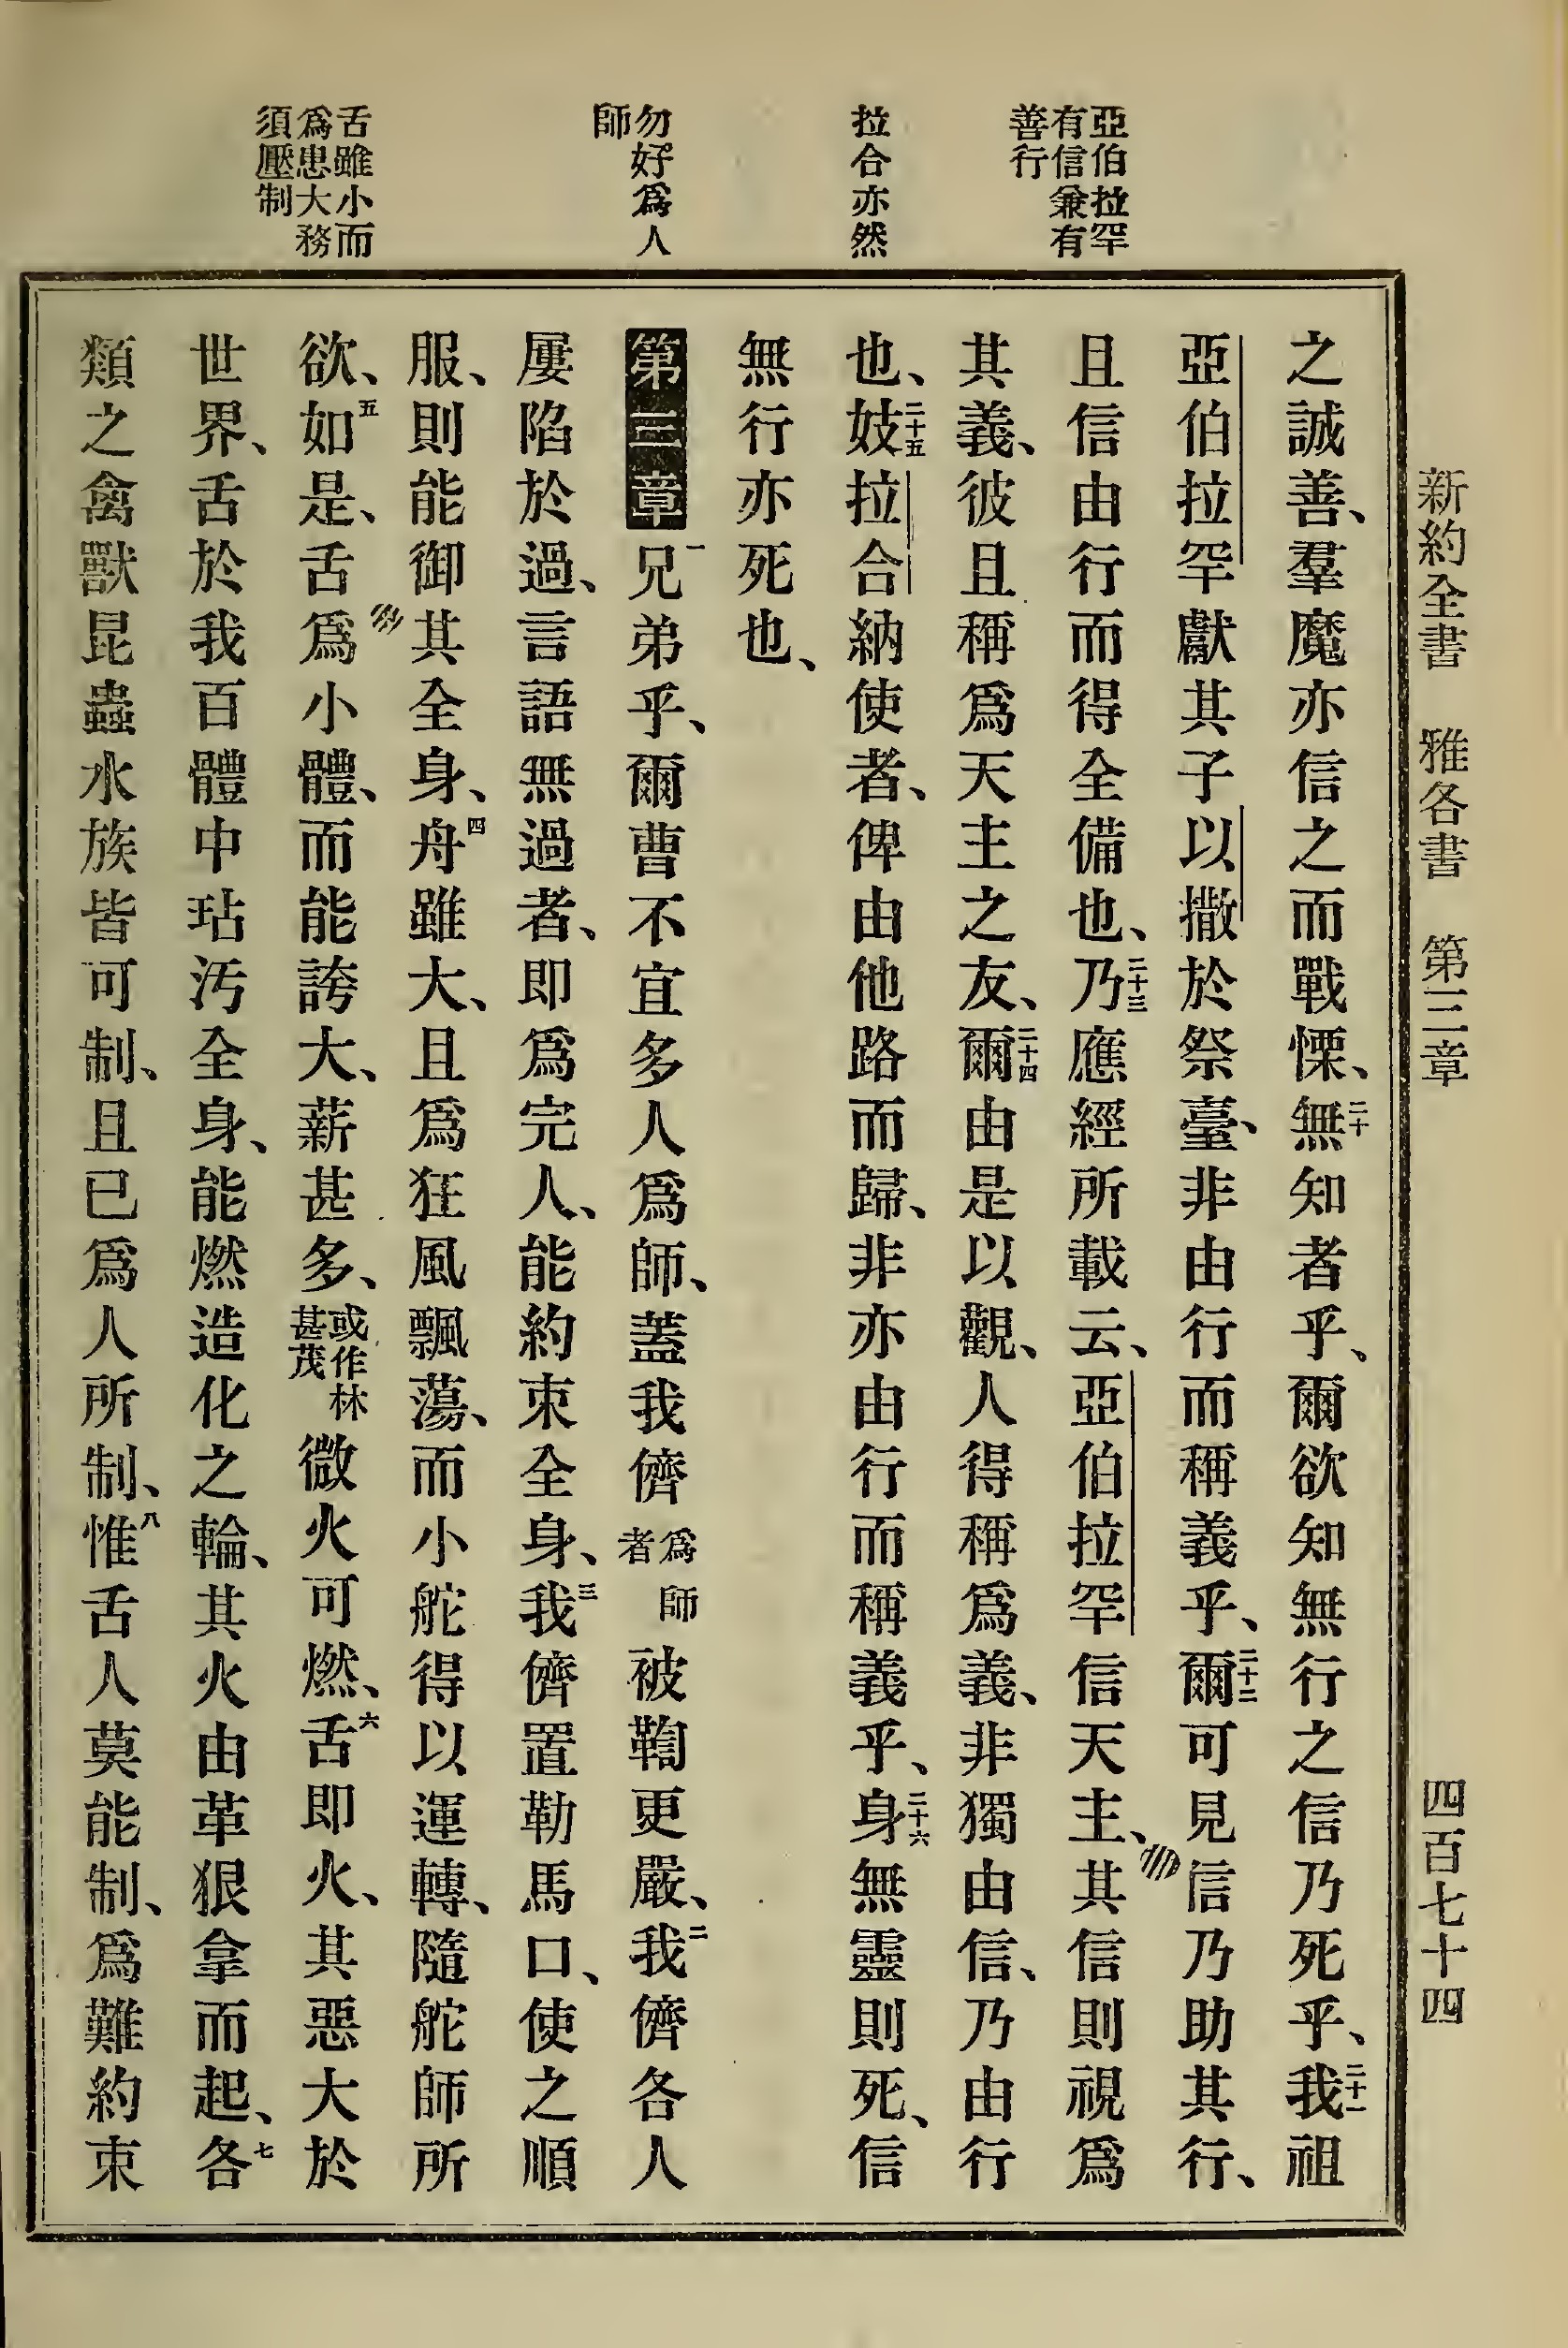 新約全書 雅各書 第三章 四百七十四
亞伯拉罕
有信兼有
善行
拉合亦然
勿好爲人
師
舌雖小而
爲患大務
須壓制
之誠善、羣魔亦信之而戰慄、二十無知者乎、爾欲知無行之信乃死乎、二十一我祖
亞伯拉罕獻其子以撒於祭臺、非由行而稱義乎、二十二爾可見信乃助其行、
且信由行而得全備也、二十三乃應經所載云、亞伯拉罕信天主、其信則視爲
其義、彼且稱爲天主之友、二十四爾由是以觀、人得稱爲義、非獨由信、乃由行
也、二十五妓拉合納使者、俾由他路而歸、非亦由行而稱義乎、二十六身無靈則死、信
無行亦死也、
第三章 一兄弟乎、爾曹不宜多人爲師、蓋我儕爲師者被鞫更嚴、二我儕各人
屢陷於過、言語無過者、即爲完人、能約束全身、三我儕置勒馬口、使之順
服、則能御其全身、四舟雖大、且爲狂風飄蕩、而小舵得以運轉、隨舵師所
欲、五如是、舌爲小體、而能誇大、薪甚多、或作林甚茂微火可燃、六舌即火、其惡大於
世界、舌於我百體中玷汚全身、能燃造化之輪、其火由革狠拿而起、七各
類之禽獸昆蟲水族皆可制、且已爲人所制、八惟舌人莫能制、爲難約束